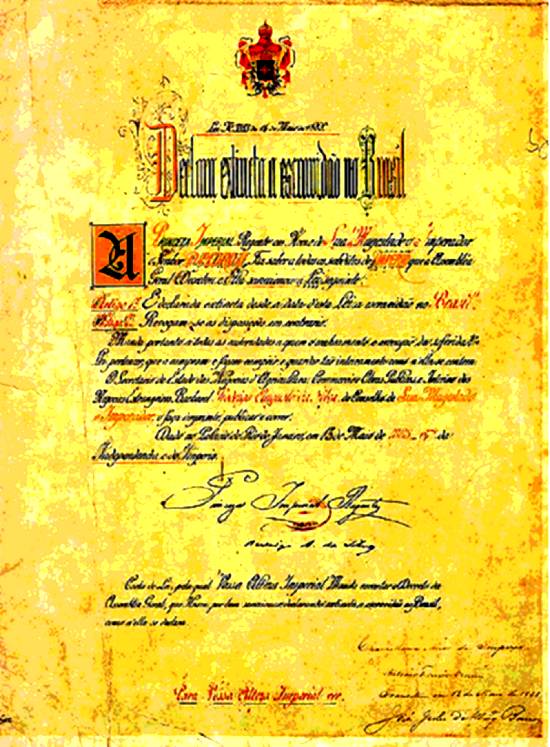 Lei N. 3353 de 13 de Maio de 1888.
Declara extincta a escravidão no Brasil
A PRINCEZA IMPERIAL Regente em Nome de Sua Magestade o Imperador
o Senhor D. PEDRO II Faz saber a todos os subditos do IMPERIO que a Assembléa
Geral Decretou e Ella sanccionou a Lei seguinte:
Artigo 1º É declarada extincta desde a data d'esta Lei a escravidão no Brazil.
Artigo 2º Revogam-se as disposições em contrario.
Manda portanto a todas as autoridades a quem o conhecimento e execução da referida Lei
pertencer, que a cumpram e façam cumprir e guardar tão inteiramente como n'ella se contem.
O Secretario de Estado dos Negocios d'Agricultura, Commercio e Obras Publicas e Interino dos
Negocios Estrangeiros, Bacharel Rodrigo Augusto da Silva do Conselho de Sua Magestade
o Imperador, o faça imprimir, publicar e correr.
Dado no Palacio do Rio de Janeiro, em 13 de Maio de 1888 67º da
Independencia e do Imperio.
Princeza Imperial Regente
Rodrigo A. da Silva
Carta de Lei, pela qual Vossa Alteza Imperial Manda executar o Decreto da
Assembléa Geral, que Houve por bem sanccionar declarando extincta a escravidão no Brazil,
como n'ella se declara.
Para Vossa Alteza Imperial ver.